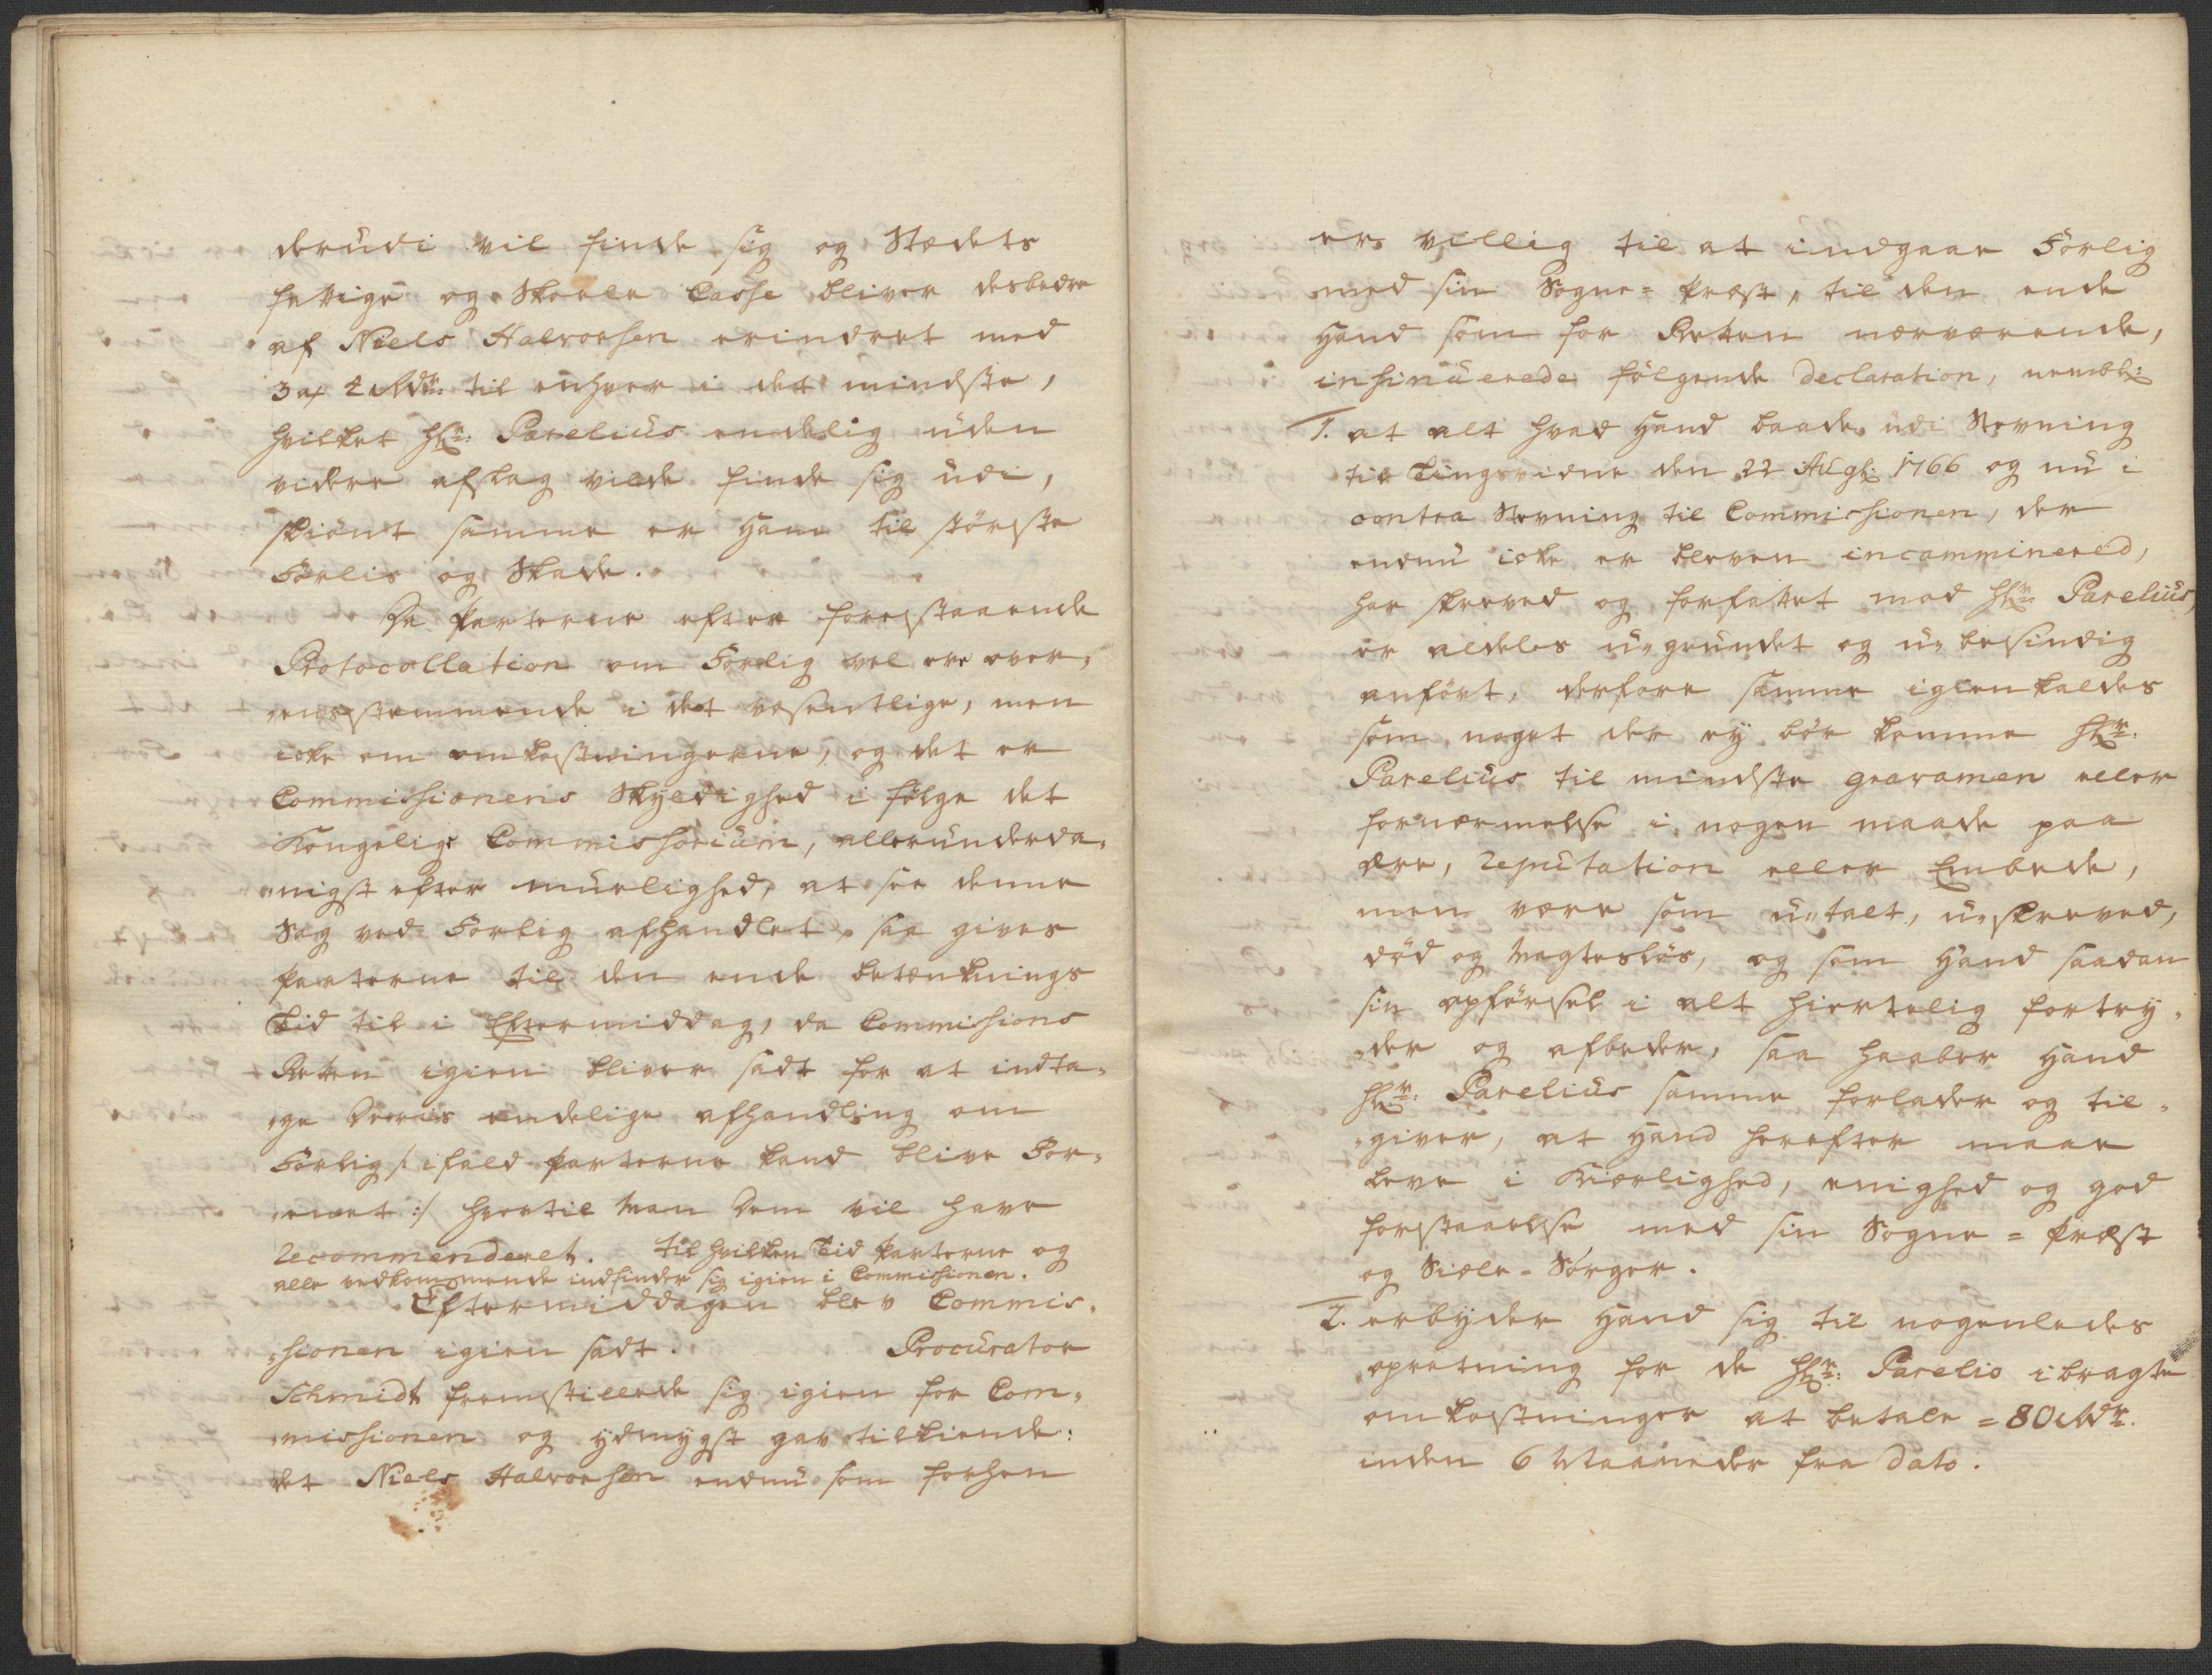 derudi vil finde sig og Stedets
fattige og Skoele Casse bliver desbedre
af Niels Halvorsen erindret med
3 a 4 Rdr: til enhver i det mindste,
hvilket Hr: Parelius endelig uden
videre afslag vilde finde sig udi,
skiønt samme er Ham til største
Forlis og Skade.
Da Parterne efter forestaaende
Protocollation om Forlig vel ere over„
„eensstemmende i det væsentlige, men
icke om omkostningerne, og det er
Commissionens Skyldighed i følge det
Kongelige Commissorium, allerunderda„
„nigst efter muelighed, at see denne
Sag ved Forlig afhandlet, saa gives
Parterne til den ende betænknings
Tid til i Eftermiddag, da Commissions
Retten igien bliver sadt for at indta„
„ge Deris endelige afhandling om
Forlig /: ifald Parterne kand blive For„
„eenet :/ hvortil man Dem vil have
recommenderet. til hvilken Tid Parterne og
alle vedkommende indfinder sig igien i Commissionen.
Eftermiddagen blev Commis„
„sionen igien sadt. Procurator
Schmidt fremstillede sig igien for Com„
„missionen og ydmygst gav tilkiende:
det Niels Halvorsen endnu som forhen
er villig til at indgaae Forlig
med sin Sogne= Præst, til den ende
Hand som for Retten nærværende,
insinuerede følgende declaration, nembl:
1. at alt hvad Hand baade udi Stevning
til Tingsvidne den 22 Augs: 1766 og nu i
contra Stevning til Commissionen, der
endnu icke er bleven incamminered,
har skreved og forfattet mod Hr: Parelius,
er aldeles u„grundet og u„besindig
anført, derfore samme igienkaldes
som noget der ey bør komme Hr:
Parelius til mindste gravamen eller
fornærmelse i nogen maade paa
ære, reputation eller Embede,
men være som u„talt, u„skreved,
død og magtesløs, og som Hand saadan
sin opførsel i alt hiertelig fortry„
„der og afbeder, saa haaber Hand
Hr: Parelius samme forlader og til„
„giver, at Hand herefter maae
leve i Kiærlighed, enighed og god
forstaaelse med sin Sogne= Præst
og Siæle= Sørger.
2. erbyder Hand sig til nogenledes
opretning for de Hr: Parelio ibragte
omkostninger at betale = 80 Rdr.
inden 6 Maaneder fra Dato.